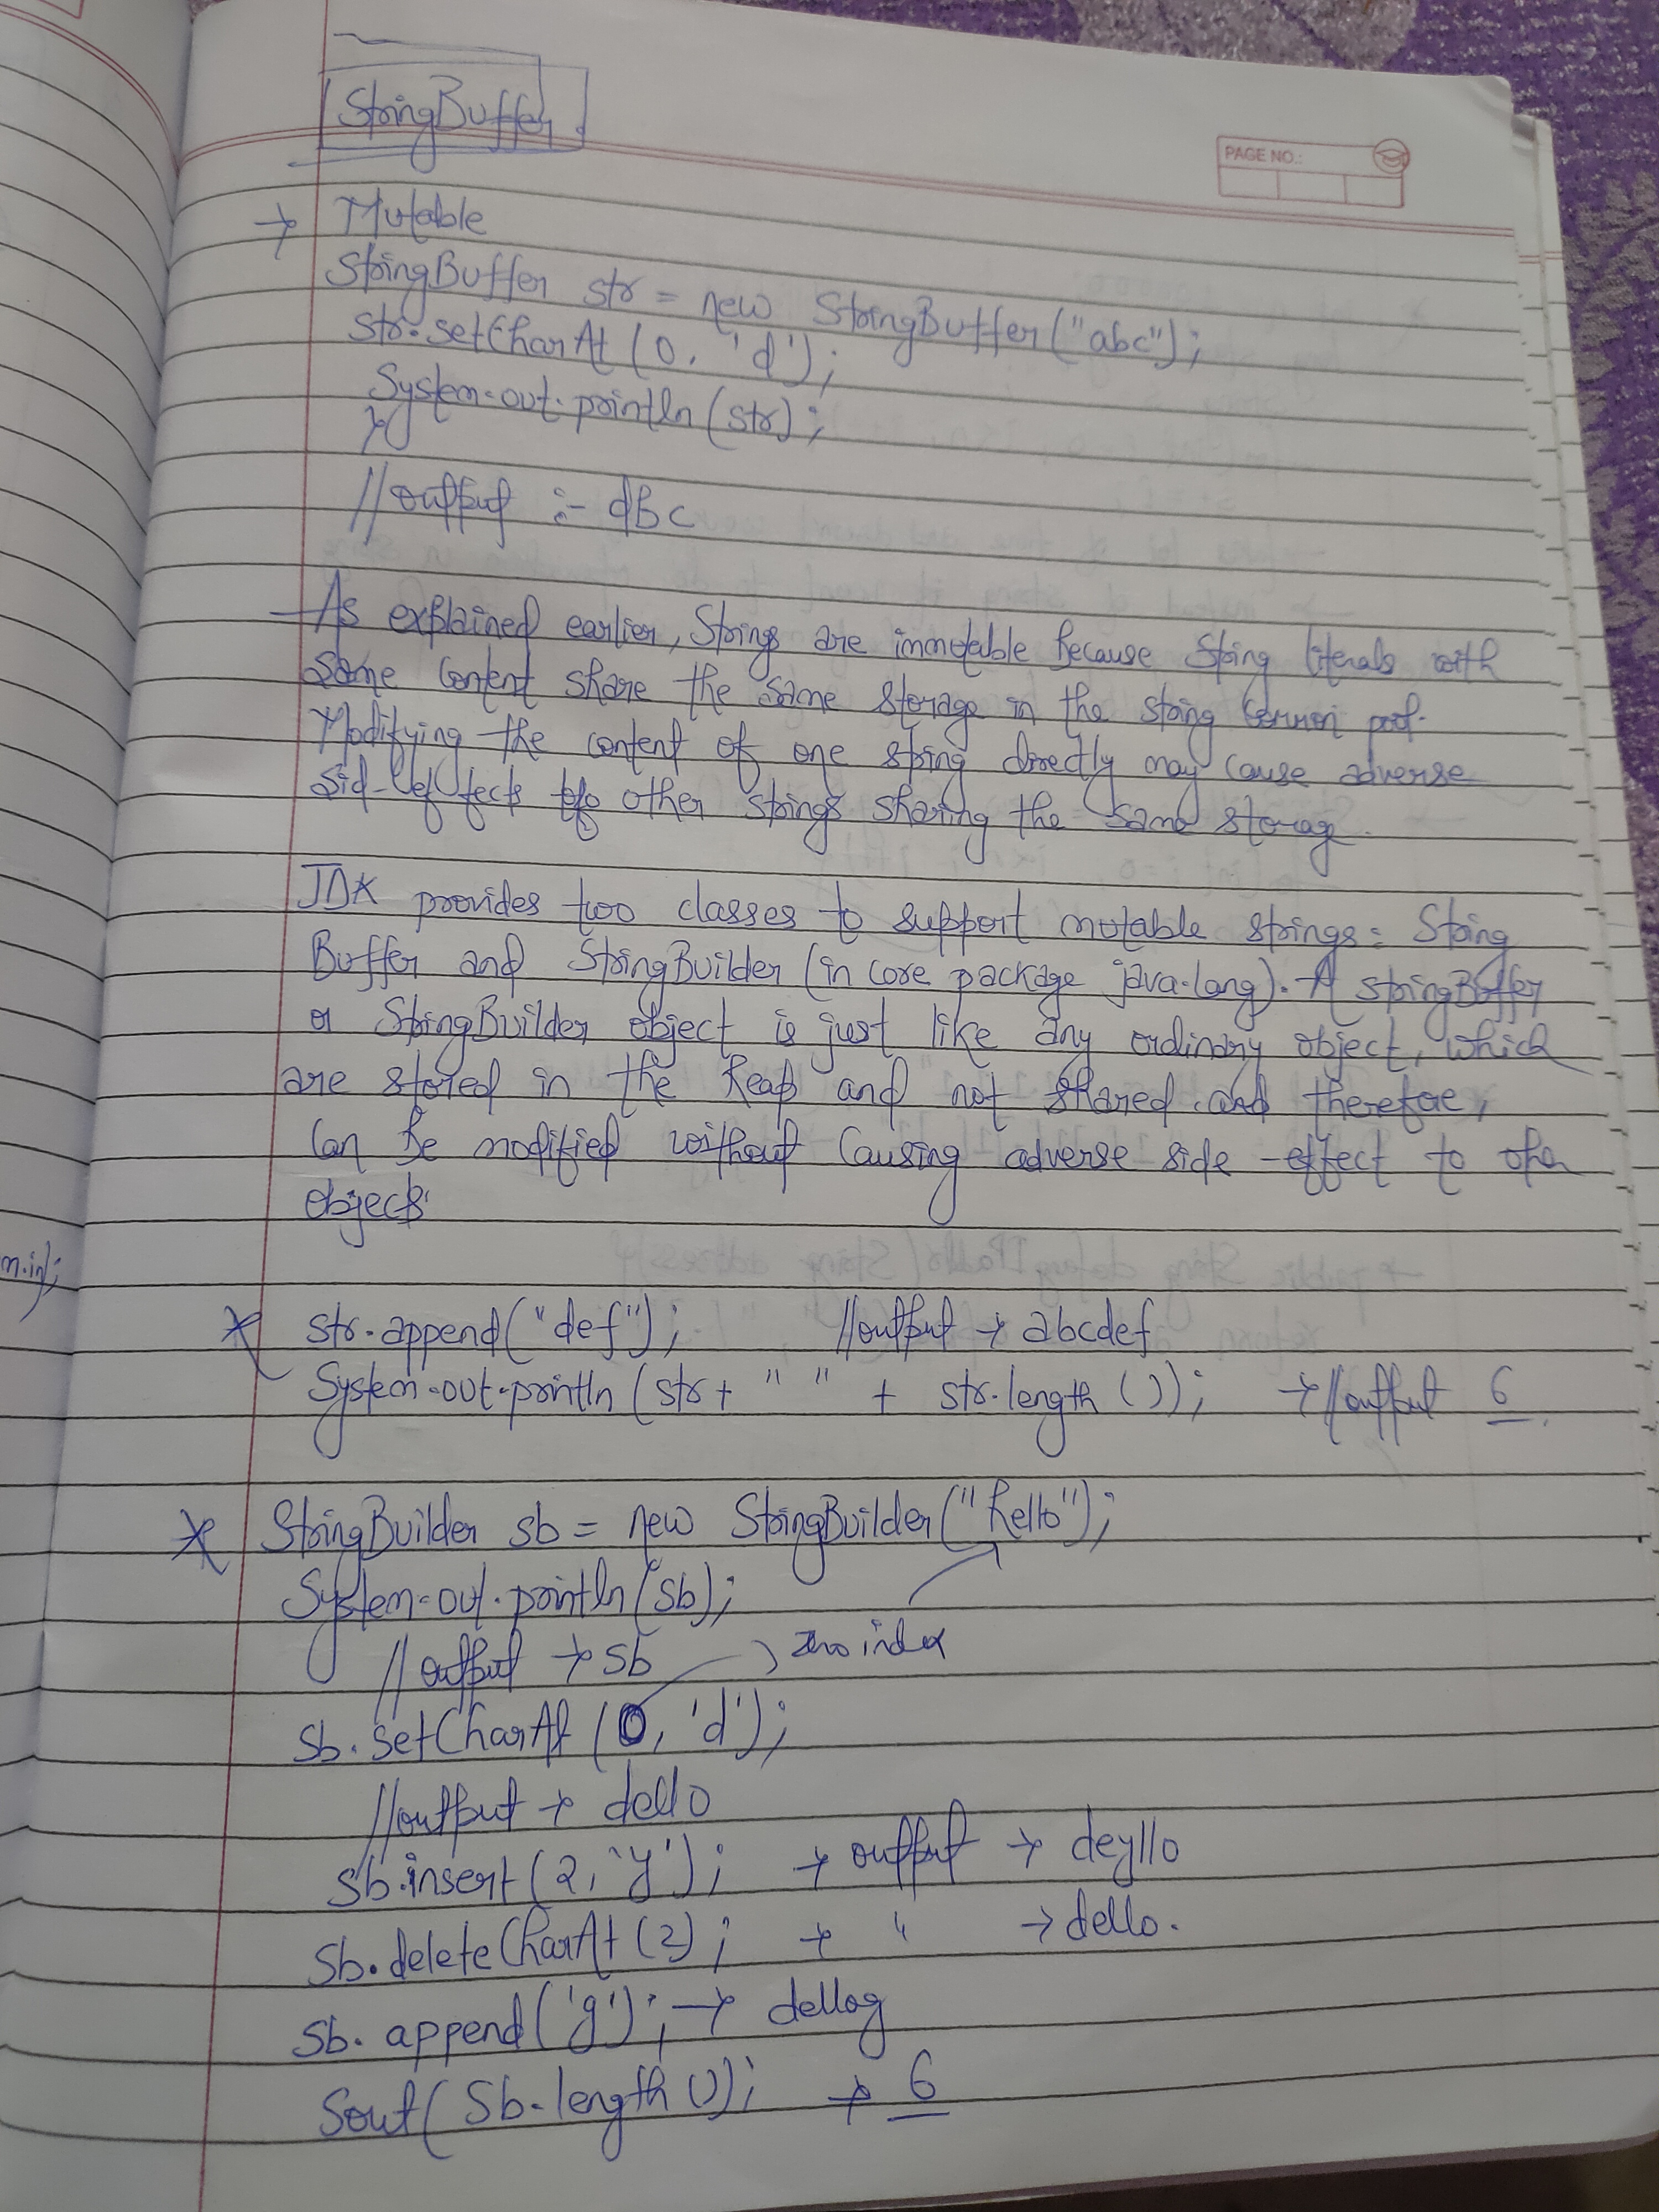 StringBuffer
PAGE NO.:
→ Mutable
StringBuffer str = new StringBuffer("abc");
str.setCharAt (0, 'd');
System.out.println (str);
}
//output :- dbc
- As explained earlier, Strings are immutable because String literals with
same content share the same storage in the string common pool.
Modifying the content of one string directly may cause adverse
sid-effects to other strings sharing the same storage.
JDK provides two classes to support mutable strings: String
Buffer and StringBuilder (in core package java.lang). A stringBuffer
or StringBuilder object is just like any ordinary object, which
are stored in the heap and not shared and therefore,
can be modified without causing adverse side-effect to other
objects.
m.in);
* str.append("def"); //output → abcdef
System.out.println (str + " " + str.length ()); → //output 6
* StringBuilder sb = new StringBuilder("hello");
System.out.println (sb);
//output → sb → zero index
sb.setCharAt (0, 'd');
//output → dello
sb.insert (2, 'y'); → output → deyllo
sb.deleteCharAt (2); → " → dello.
sb.append('g'); → dellog
Sout( Sb.length ()); → 6